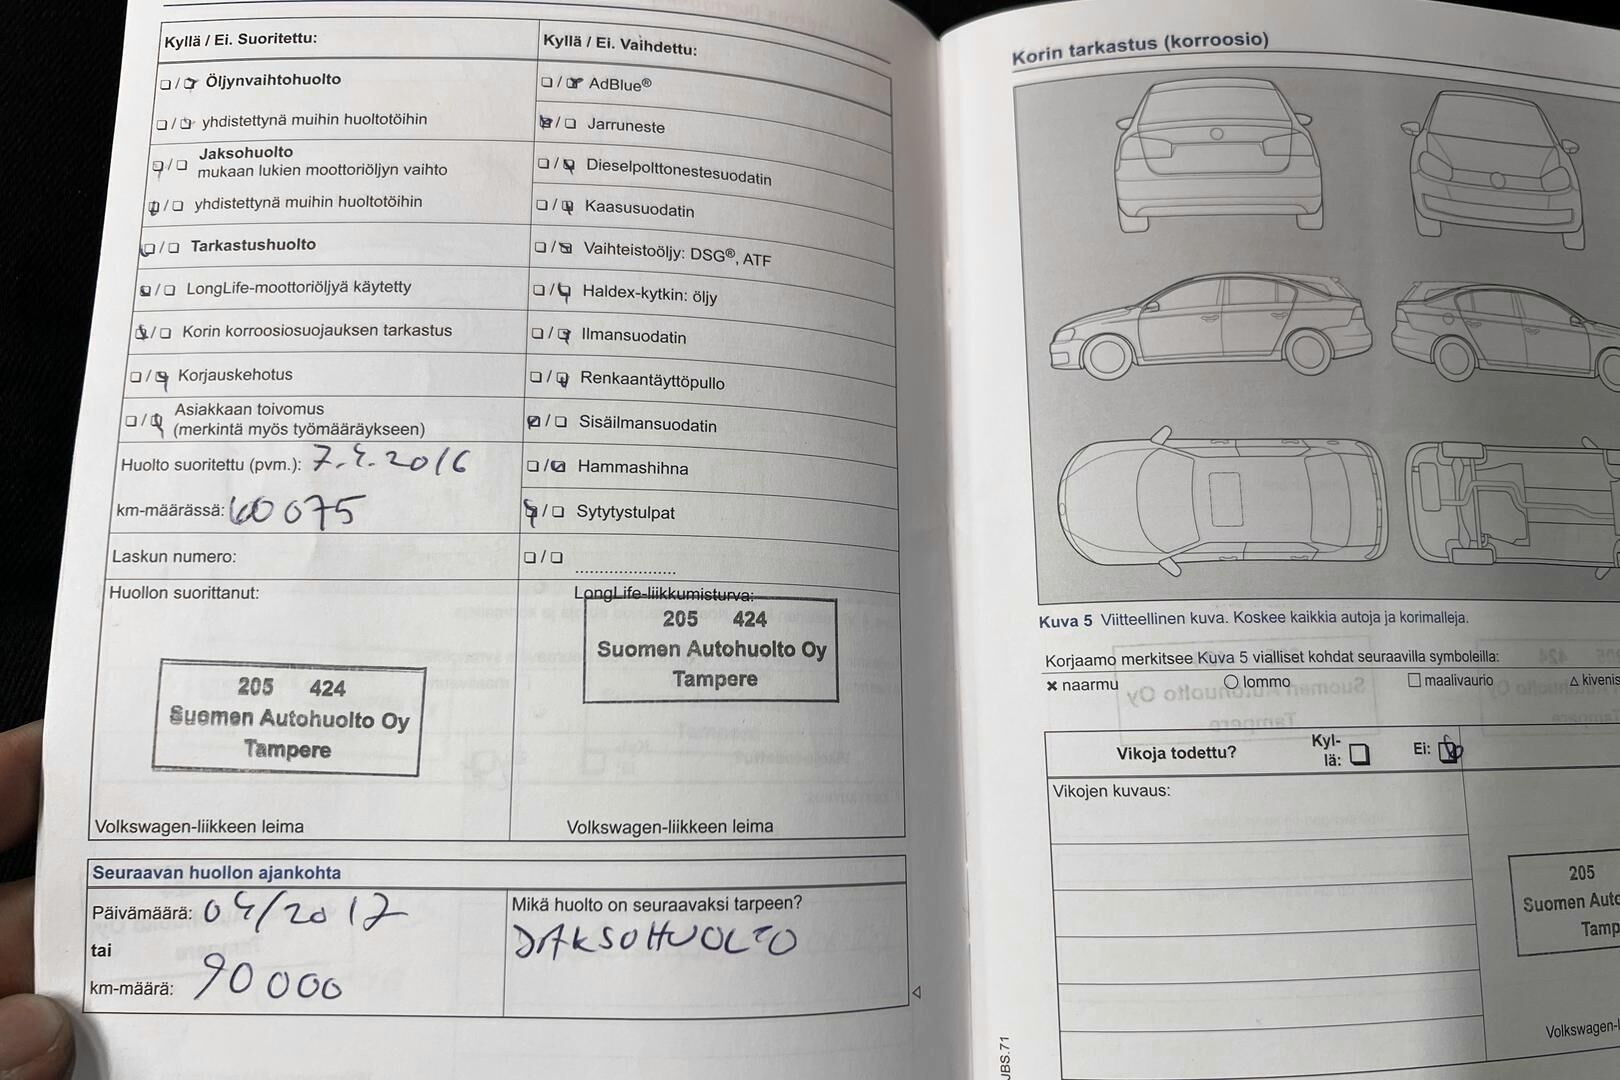 Kyllä / Ei. Suoritettu:
Öljynvaihtohuolto
yhdistettynä muihin huoltotöihin
Jaksohuolto
mukaan lukien moottoriöljyn vaihto
yhdistettynä muihin huoltotöihin
Tarkastushuolto
LongLife-moottoriöljyä käytetty
Korin korroosiosuojauksen tarkastus
Korjauskehotus
Asiakkaan toivomus
(merkintä myös työmääräykseen)
Huolto suoritettu (pvm.): 7.4.2016
km-määrässä: 60 075
Laskun numero:
Huollon suorittanut:
205 424
Suomen Autohuolto Oy
Tampere
Volkswagen-liikkeen leima
Kyllä / Ei. Vaihdettu:
AdBlue®
Jarruneste
Dieselpolttonestesuodatin
Kaasusuodatin
Vaihteistoöljy: DSG®, ATF
Haldex-kytkin: öljy
Ilmansuodatin
Renkaantäyttöpullo
Sisäilmansuodatin
Hammashihna
Sytytystulpat
....................
LongLife-liikkumisturva:
205 424
Suomen Autohuolto Oy
Tampere
Volkswagen-liikkeen leima
Seuraavan huollon ajankohta
Päivämäärä: 04/2017
tai
km-määrä: 90 000
Mikä huolto on seuraavaksi tarpeen?
JAKSOHUOLTO
Korin tarkastus (korroosio)
Kuva 5 Viitteellinen kuva. Koskee kaikkia autoja ja korimalleja.
Korjaamo merkitsee Kuva 5 vialliset kohdat seuraavilla symboleilla:
× naarmu ○ lommo □ maalivaurio △ kivenis
Vikoja todettu? Kyl-
lä: Ei:
Vikojen kuvaus:
205
Suomen Auto
Tamp
Volkswagen-l
JBS.71